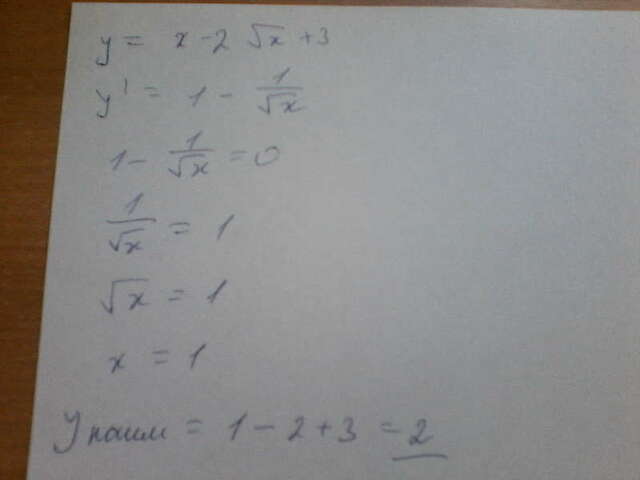 y = x - 2 √x + 3
y' = 1 - 1/√x
1 - 1/√x = 0
1/√x = 1
√x = 1
x = 1
y наим = 1 - 2 + 3 = 2